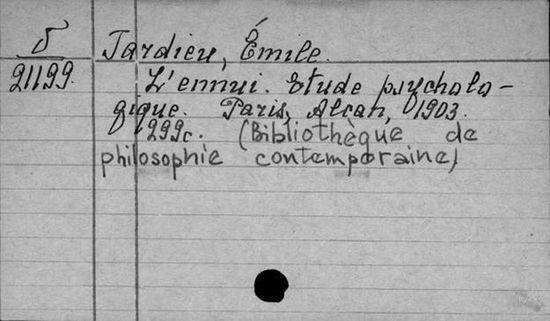 δ Tardieu, Émile.
21199. L'ennui. Etude psycholo-
gique. Paris, Alcan, 1903.
299c. (Bibliothèque de
philosophie contemporaine)